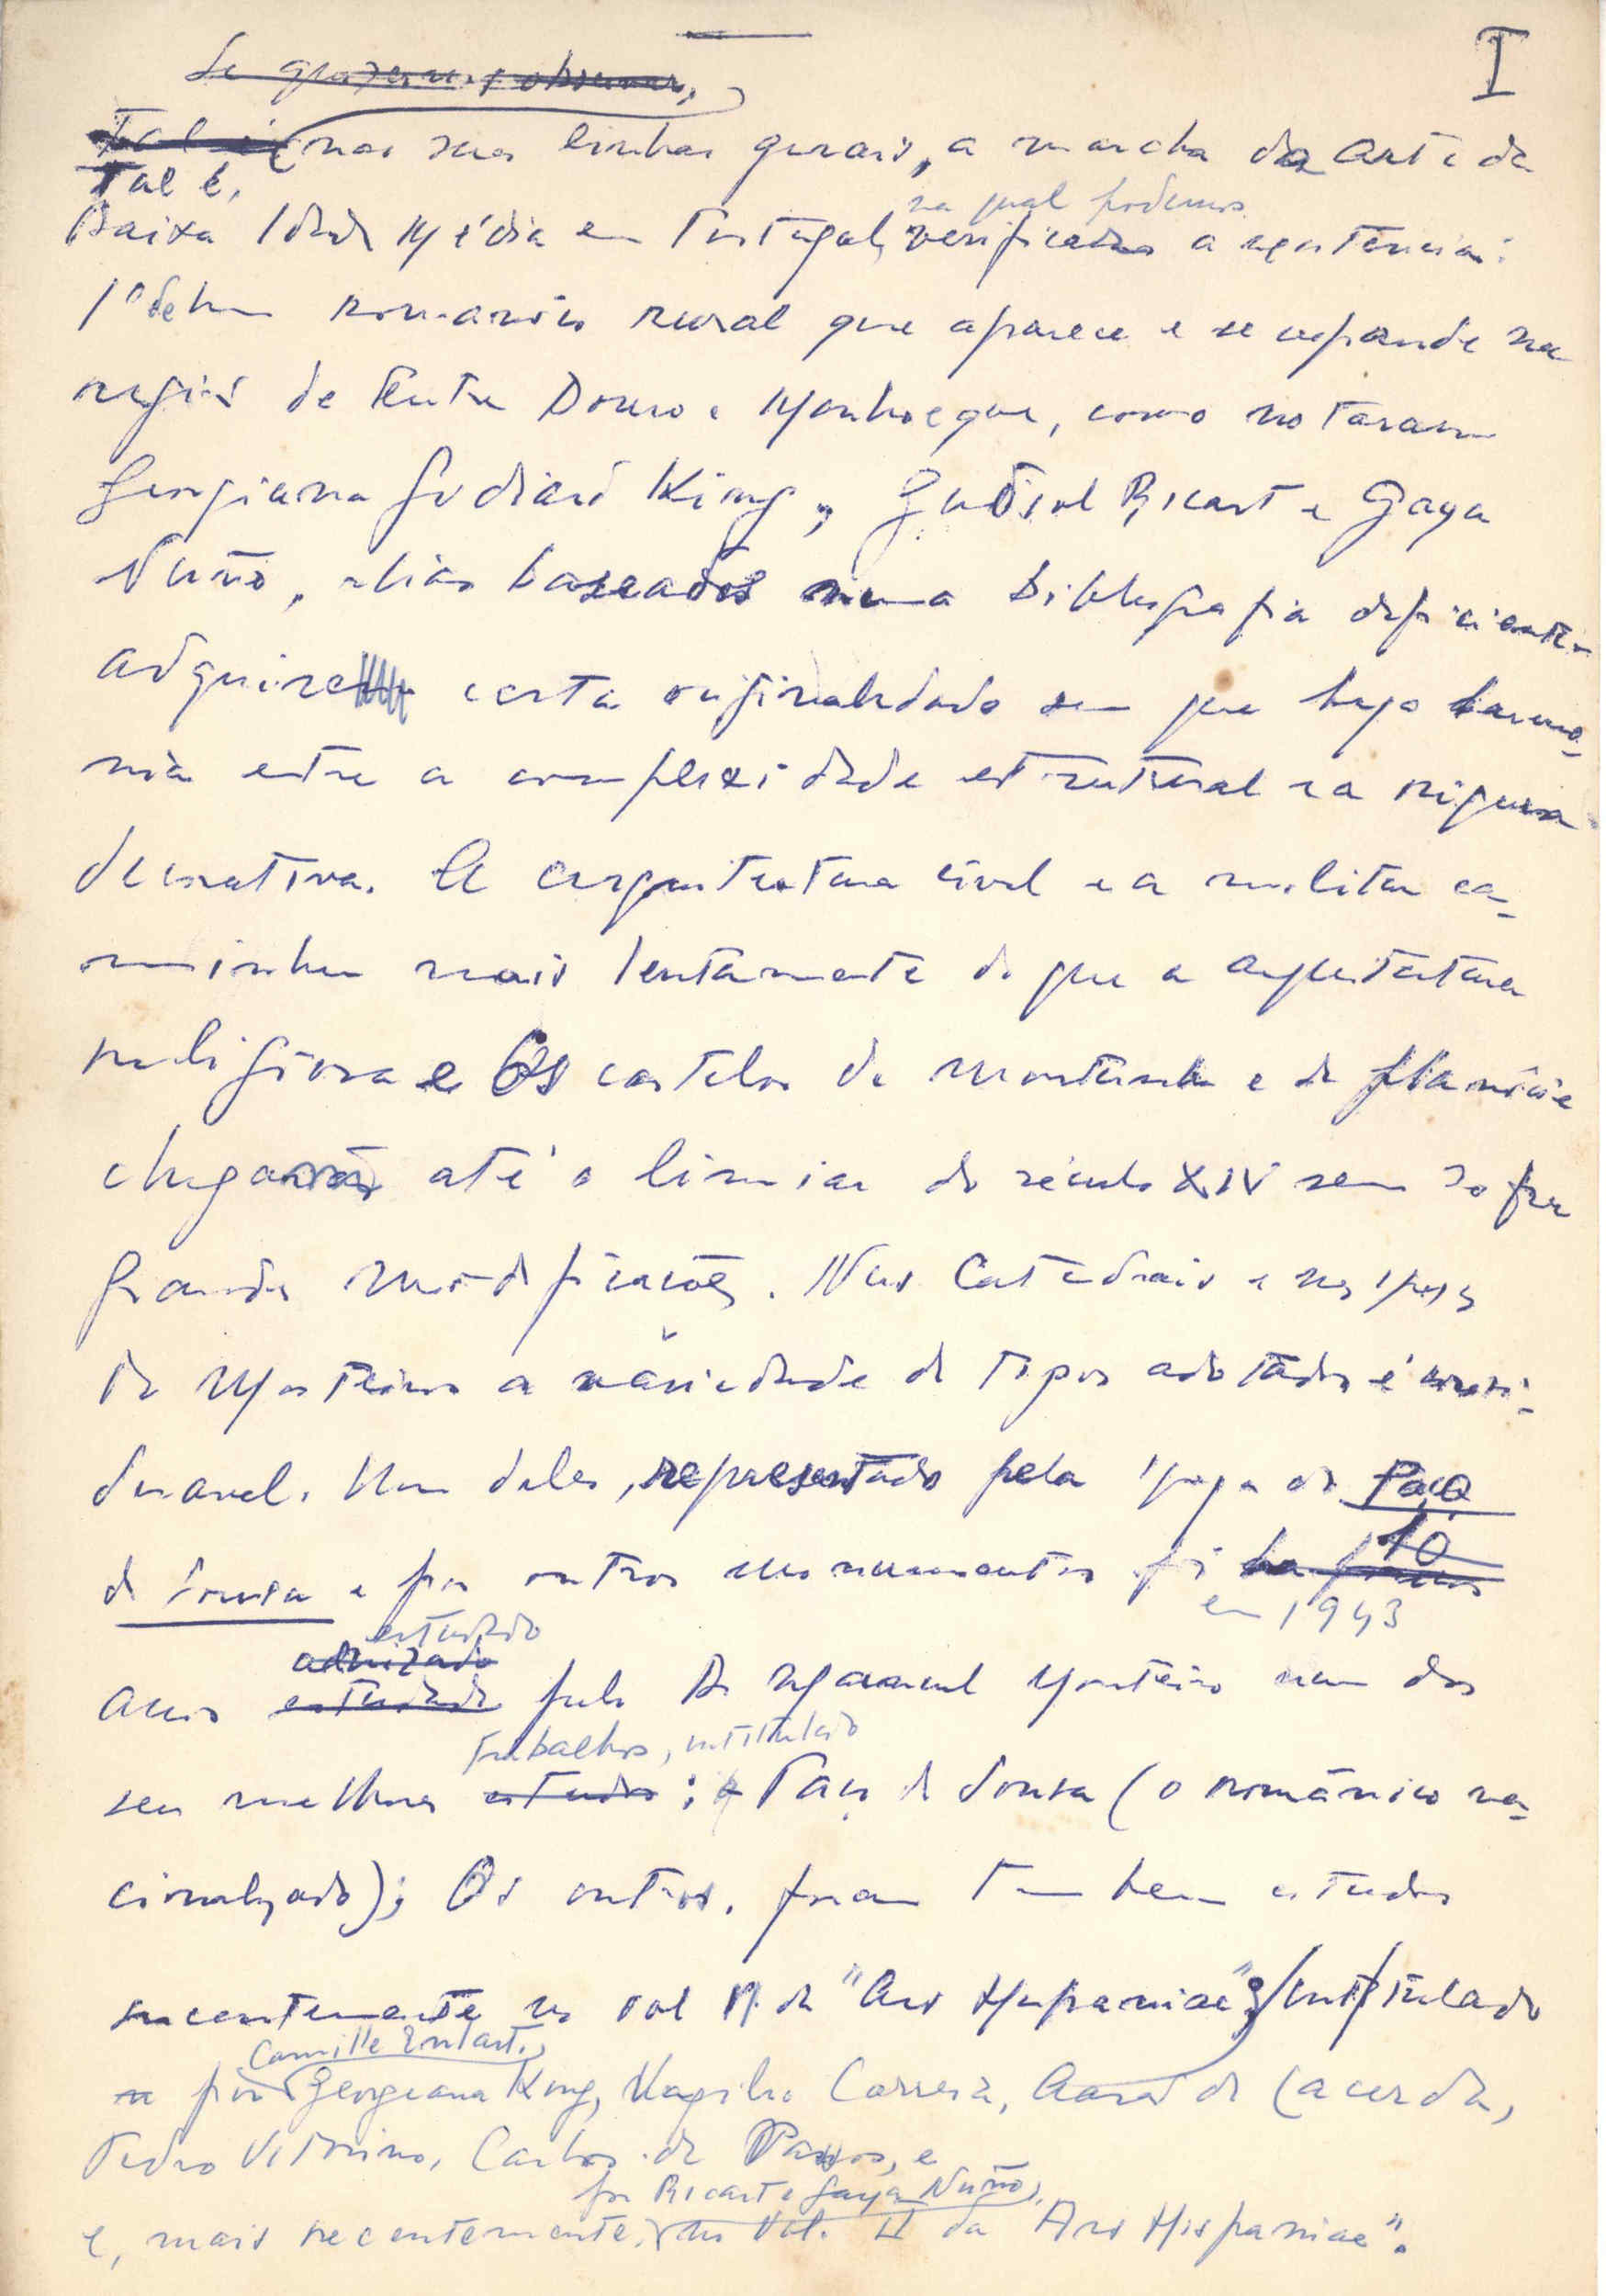 I
Se quizermos observar,
Tal é nas suas linhas gerais, a marcha da arte da
Tal é,
na qual podemos
Baixa Idade Média em Portugal, verificados a existencia:
1º de um romanico rural que aparece e se expande na
região de Entre Douro e Minho e que, como notaram
Georgiana Godiard King, Gudiol Ricart e Gaya
Nuño, aliás baseados numa bibliografia deficiente
adquire certa originalidade sem que haja harmo-
nia entre a complexidade estrutural e a riqueza
decorativa. A arquitectura civil e a militar ca-
minham mais lentamente do que a arquitectura
religiosa e os castelos de montanha e de planicie
chegaram até o limiar do século XIV sem sofrer
grandes modificações. Nas Catedrais e nas Igrejas
de Mosteiros a variedade de tipos adotados é consi-
deravel. Um deles, representado pela Igreja de Paço
de Sousa e por outros monumentos foi ha poucos
10
em 1943
estudado
anos estudado pelo Dr Manuel Monteiro num dos
trabalhos, intitulado
seus melhores estudos: Paço de Sousa (o românico na-
cionalizado); Os outros, foram tambem estudados
recentemente no vol II da "Ars Hispaniae" intitulado
Camille Enlart,
por Georgeana King, Vergilio Correia, Aarão de Lacerda,
Pedro Vitorino, Carlos de Passos, e
por Ricart e Gaya Nuño,
e, mais recentemente, no Vol. II da "Ars Hispaniae".